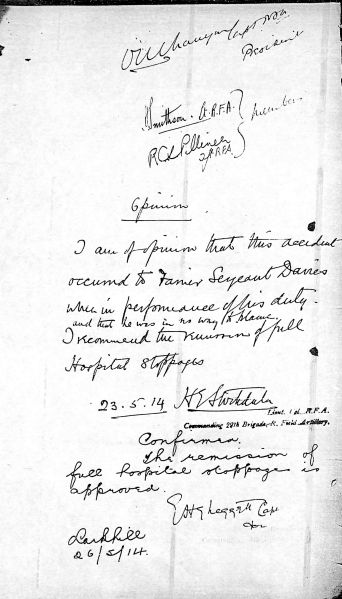 Capt RFA
President
Smithson. Lt. R.F.A.
Members
2/Lt RFA
Opinion
I am of opinion that this accident
occurred to Farrier Sergeant Davies
when in performance of his duty.
and that he was in no way to blame.
I recommend the remission of full
Hospital Stoppages
23.5.14 H E Stockdale
Lieut. Col. R.F.A.
Commanding 28th Brigade, R. Field Artillery.
Confirmed.
The remission of
full hospital stoppages is
approved.
Capt
Larkhill
26/5/14.